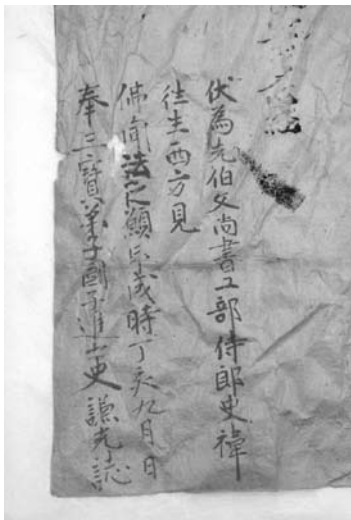 伏為先伯父尚書工部侍郎史禕
往生西方見
佛聞法之願成時丁亥九月 日
奉三寶弟子國子進士史 謙光誌